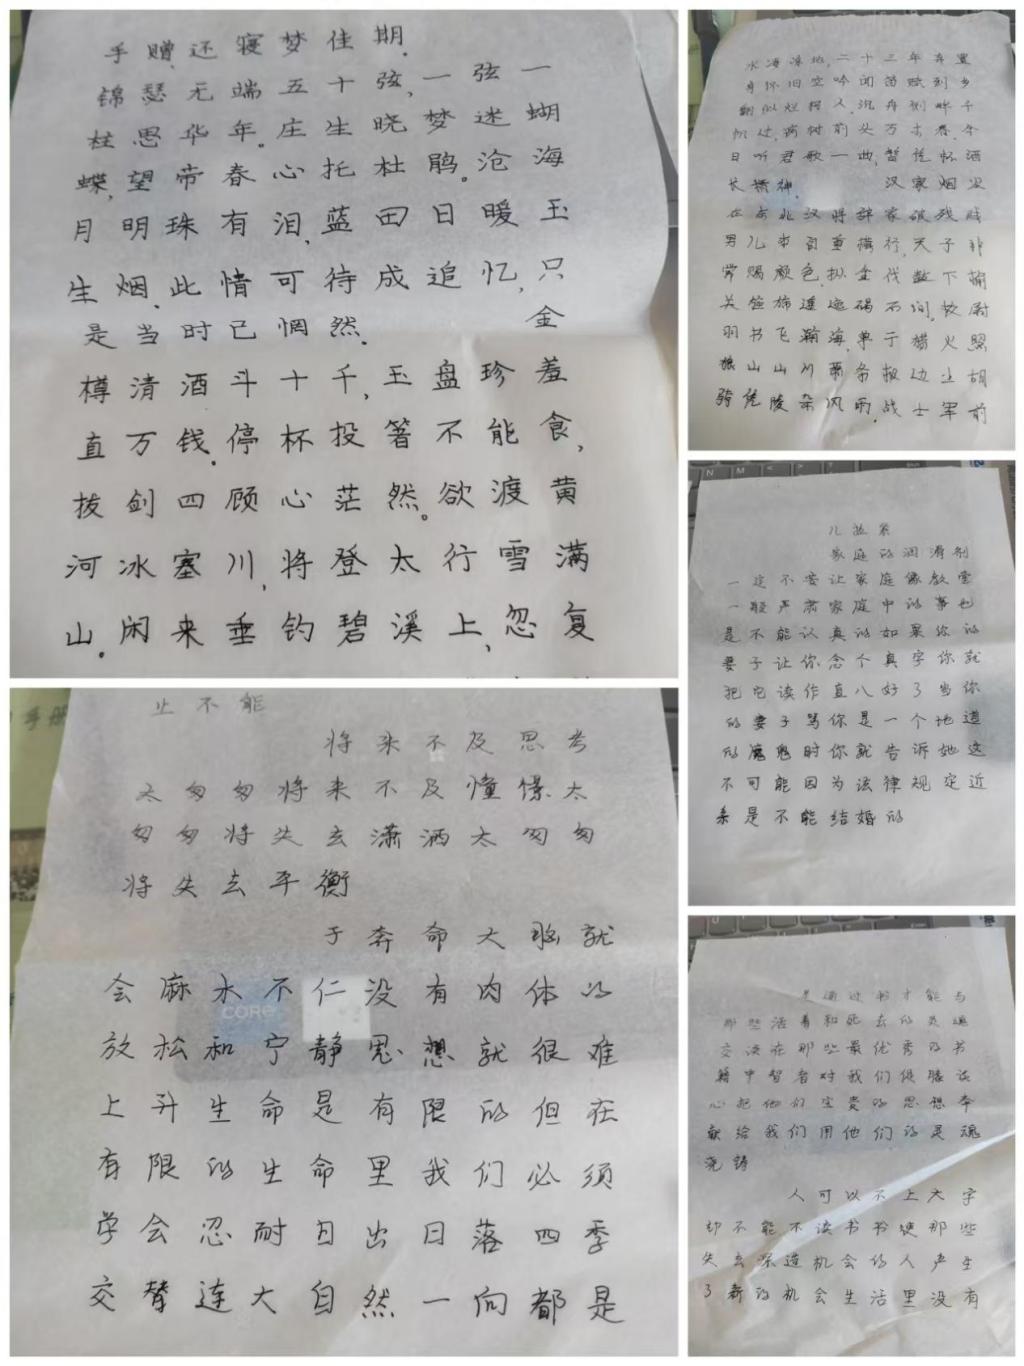 手赠,还寝梦佳期.
锦瑟无端五十弦,一弦一
柱思华年.庄生晓梦迷蝴
蝶,望帝春心托杜鹃。沧海
月明珠有泪,蓝田日暖玉
生烟.此情可待成追忆,只
是当时已惘然. 金
樽清酒斗十千,玉盘珍羞
直万钱.停杯投箸不能食,
拔剑四顾心茫然。欲渡黄
河冰塞川,将登太行雪满
山.闲来垂钓碧溪上,忽复
止不能
将来不及思考
太匆匆将来不及憧憬太
匆匆将失去潇洒太匆匆
将失去平衡
于奔命大脑就
会麻木不仁没有肉体的
放松和宁静思想就很难
上升生命是有限的但在
有限的生命里我们必须
学会忍耐日出日落四季
交替连大自然一向都是
凄凉地,二十三年弃置
身怀旧空吟闻笛赋到乡
翻似烂柯人.沉舟侧畔千
帆过,病树前头万木春.今
日听君歌一曲,暂凭杯酒
长精神. 汉家烟尘
在东北汉将辞家破残贼
男儿本自重横行,天子非
常赐颜色.摐金伐鼓下榆
关旌旆逶迤碣石间.校尉
羽书飞瀚海,单于猎火照
狼山山川萧条极边土胡
骑凭陵杂风雨.战士军前
家庭的润滑剂
一定不要让家庭像教堂
一般严肃家庭中的事也
是不能认真的如果你的
妻子让你念个真字你就
把它读作直八好了当你
的妻子骂你是一个地道
的魔鬼时你就告诉她这
不可能因为法律规定近
亲是不能结婚的
是通过书才能与
那些活着和死去的灵魂
交谈在那些最优秀的书
籍中智者对我们促膝谈
心把他们宝贵的思想奉
献给我们用他们的灵魂
浇铸
人可以不上大学
却不能不读书书使那些
失去深造机会的人产生
了新的机会生活里没有